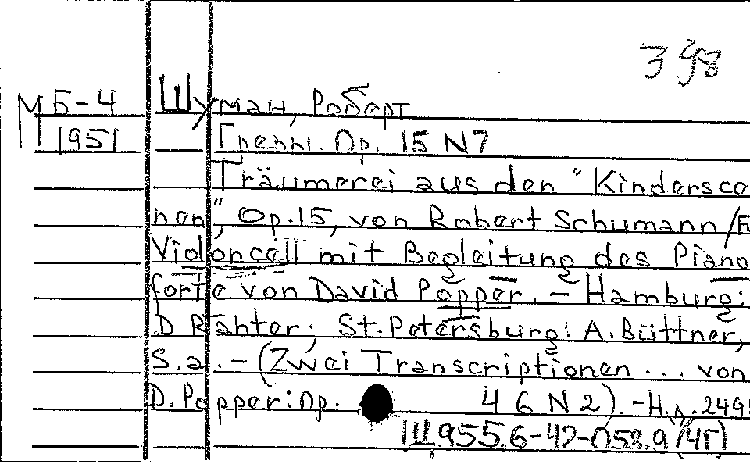 398
М Б-4 Шуман, Роберт
1951 Грёзы. Op. 15 N7
Träumerei aus den "Kindersce
nen", Op.15, von Robert Schumann/F
Violoncell mit Begleitung des Piano
forte von David Popper. – Hamburg:
D Rahter; St.Petersburg: A.Büttner,
S.a. – (Zwei Transcriptionen ... von
D.Popper: Op. 46 N 2). – Н.д. 249
Ш955.6-42-058.9